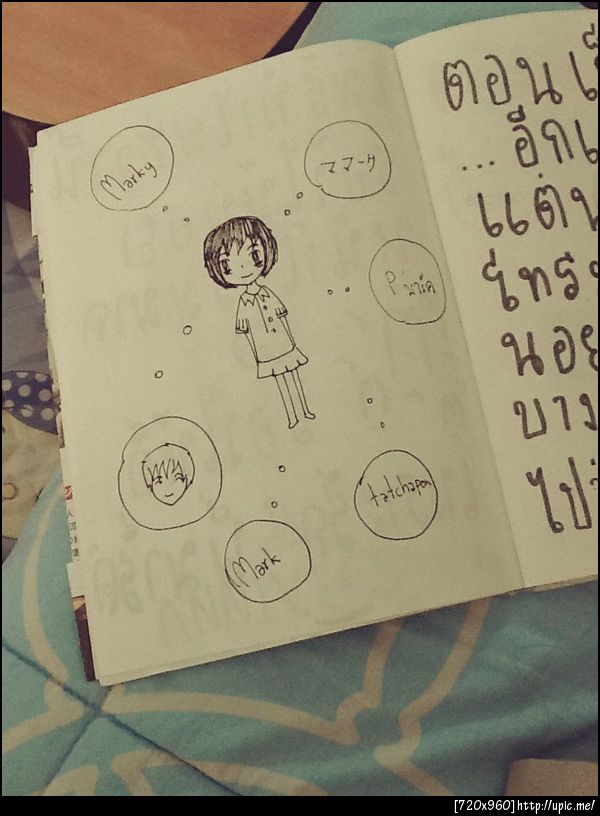 Marky
ママーク
P'มาร์ค
tatchapon
Mark
ตอนเ
...อีก
แต่
โทร
นอย
บาง
ไป
[720x960]http://upic.me/